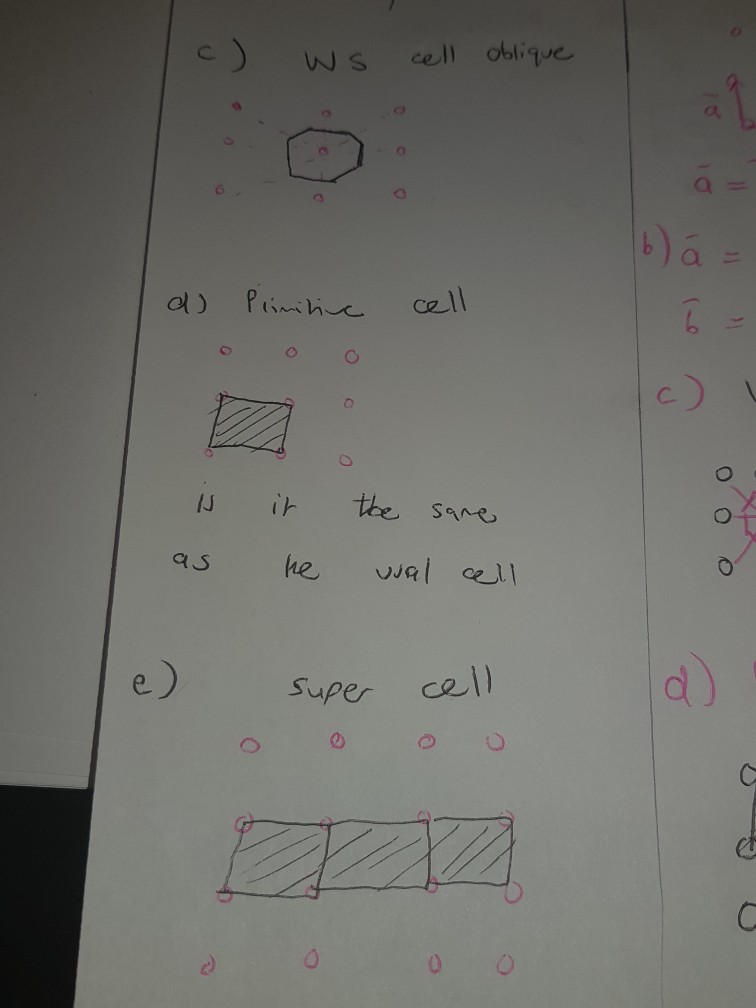 c) WS cell oblique
d) Primitive cell
is it the same
as the usual cell
e) super cell
ā
ā =
b) ā =
b̄ =
c)
d)